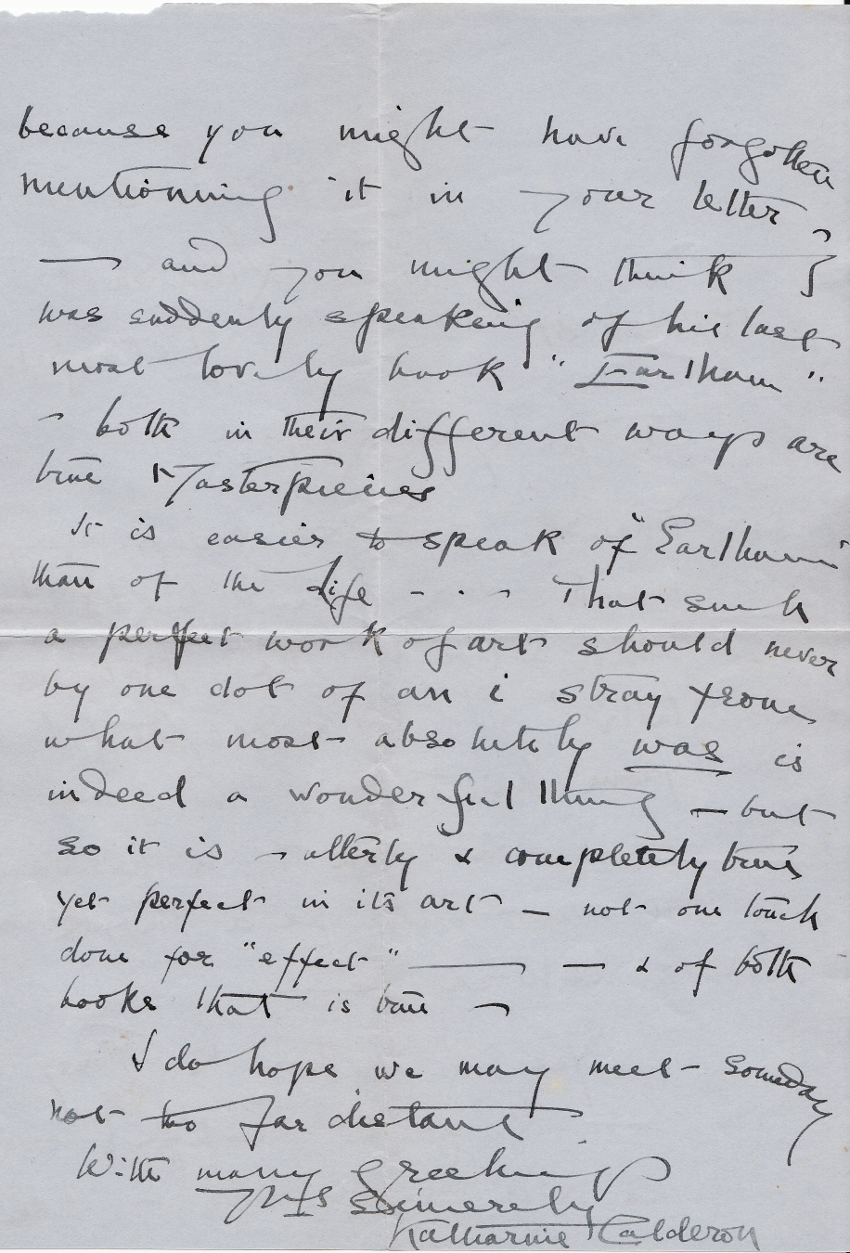 because you might have forgotten
mentioning it in your letter,
— and you might think I
was suddenly speaking of his last
most lovely book "Earlham"
- both in their different ways are
true Masterpieces
It is easier to speak of "Earlham"
than of the Life - . - That such
a perfect work of art should never
by one dot of an i stray from
what most absolutely was is
indeed a wonderful thing — but
so it is - utterly & completely true
yet perfect in its art — not one touch
done for "effect" — — & of both
books that is true -
I do hope we may meet - someday
not too far distant
With many greetings
Yrs Sincerely
Katharine Calderon